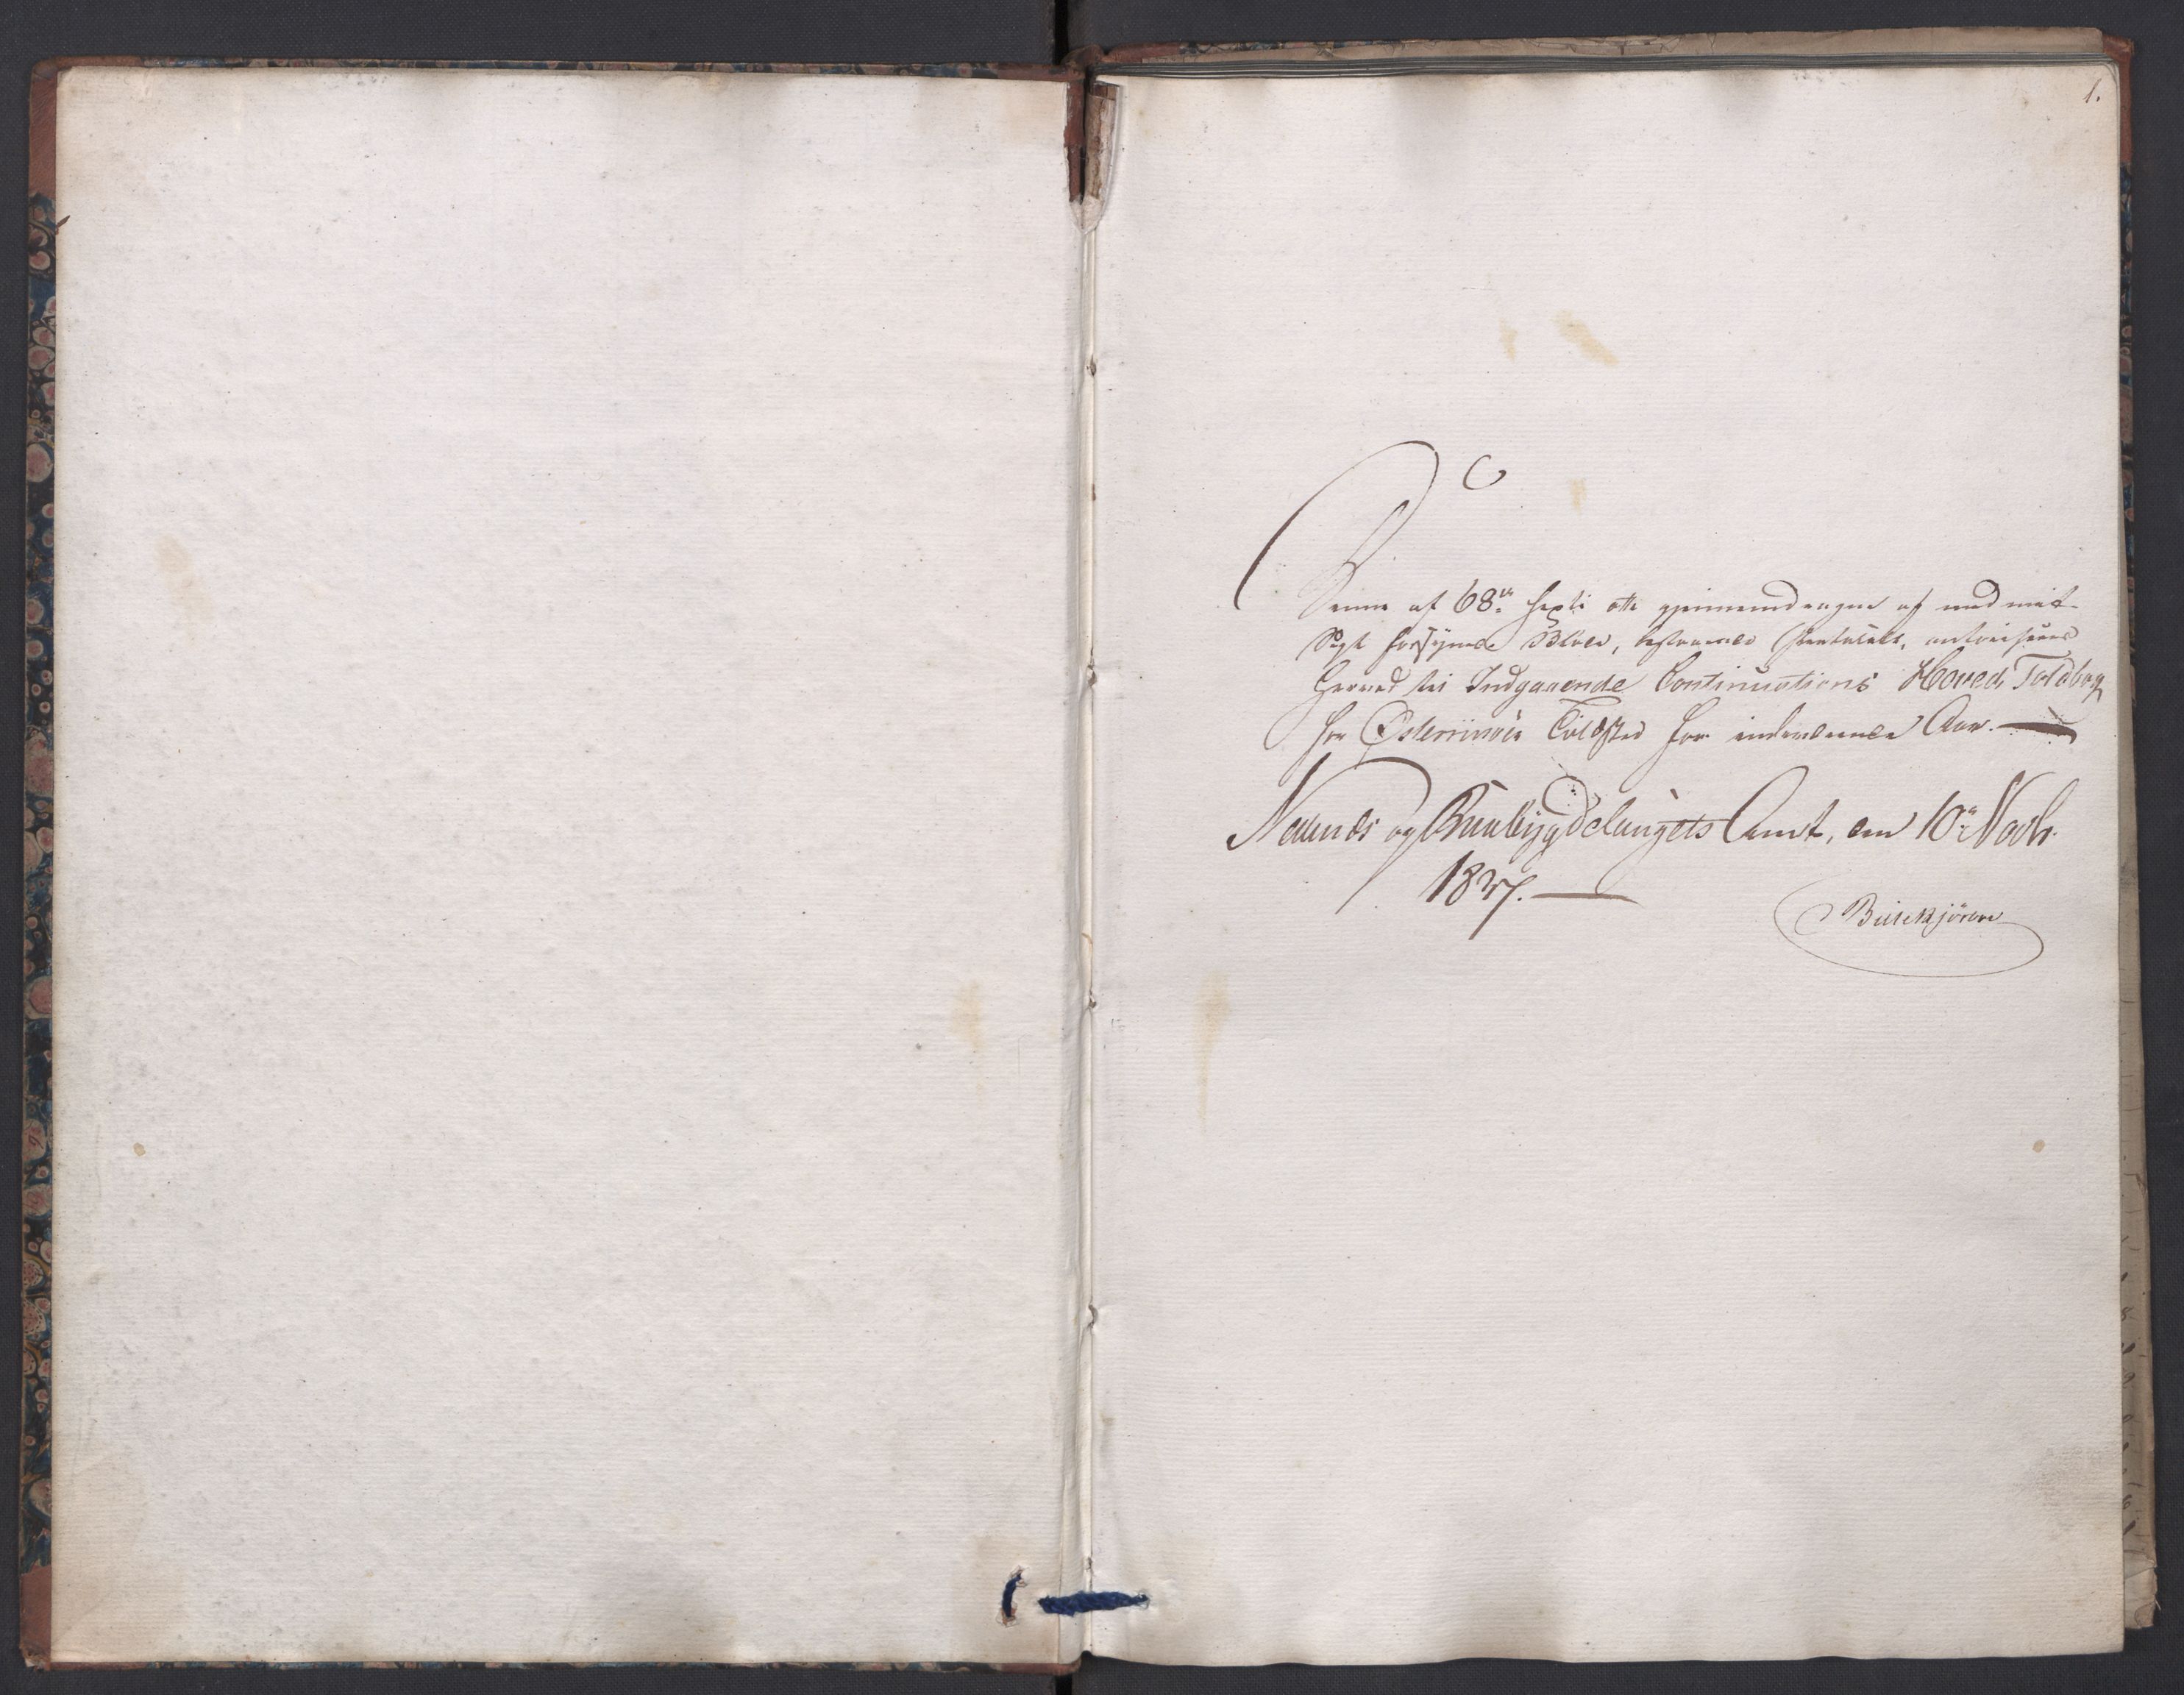 1.
Denne af 68 sexti otte gjennemdragne og med mit
Segl forsynede Blade, bestaaende Hovedbog, autoriseres
herved til Indgaaende Continuations Hoved Toldbog
for Østerriisøer Toldsted for indeværende Aar.
Nedenæs og Raabygdelaugets Amt, den 10 Novbr.
1837.
Birkkjören